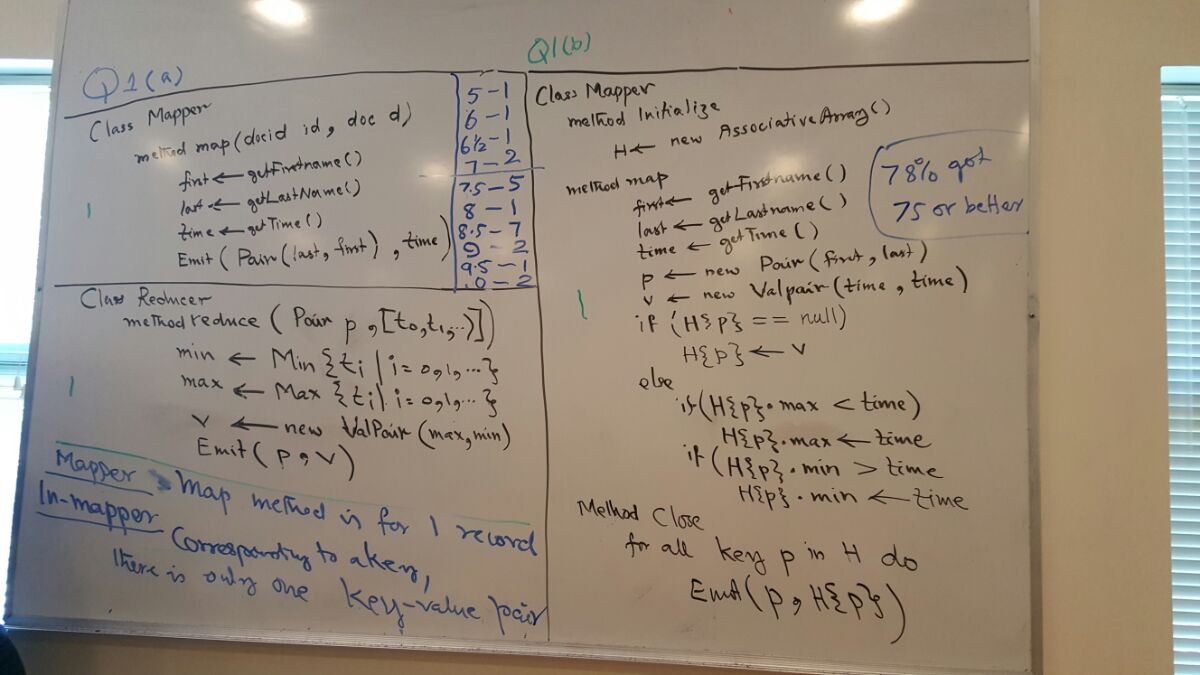 Q1(a)
Class Mapper
method map(docid id, doc d)
first ← getFirstname()
last ← getLastName()
time ← getTime()
Emit (Pair(last, first), time)
5-1
6-1
6½-1
7-2
7.5-5
8-1
8.5-7
9-2
9.5-1
.0-2
Class Reducer
method reduce (Pair p, [t0, t1, ...)])
min ← Min {ti | i = 0, 1, ...}
max ← Max {ti | i = 0, 1, ...}
v ← new ValPair (max, min)
Emit (p, v)
Mapper Map method is for 1 record
In-mapper Corresponding to a key,
there is only one key-value pair
Q1(b)
Class Mapper
method Initialize
H ← new AssociativeArray()
method map
first ← getFirstname()
last ← getLastname()
time ← getTime()
p ← new Pair (first, last)
v ← new Valpair (time, time)
if (H{p} == null)
H{p} ← v
else
if (H{p}.max < time)
H{p}.max ← time
if (H{p}.min > time
H{p}.min ← time
Method Close
for all key p in H do
Emit (p, H{p})
78% got
75 or better